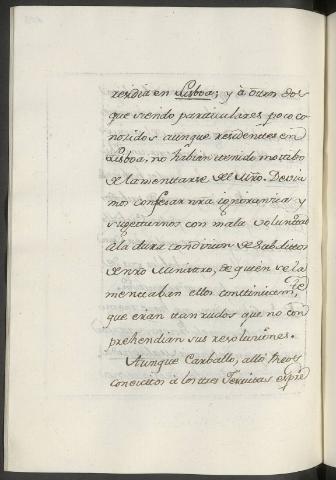 residia en Lisboa; y à otros dos
que siendo particulares poco co
nocidos aunque residentes en
Lisboa, no habian tenido motibo
de lamentarse de
mos confesar nrã ignorancia y
sugetarnos con mala voluntad
à la dura condicion de Subditos
de nrô Ministro, de quien se la
mentaban ellos continuamte
que eran tan rudos que no con
prehendian sus resoluciones.
Aunque Carballo, altò
à los tres Jesuitas